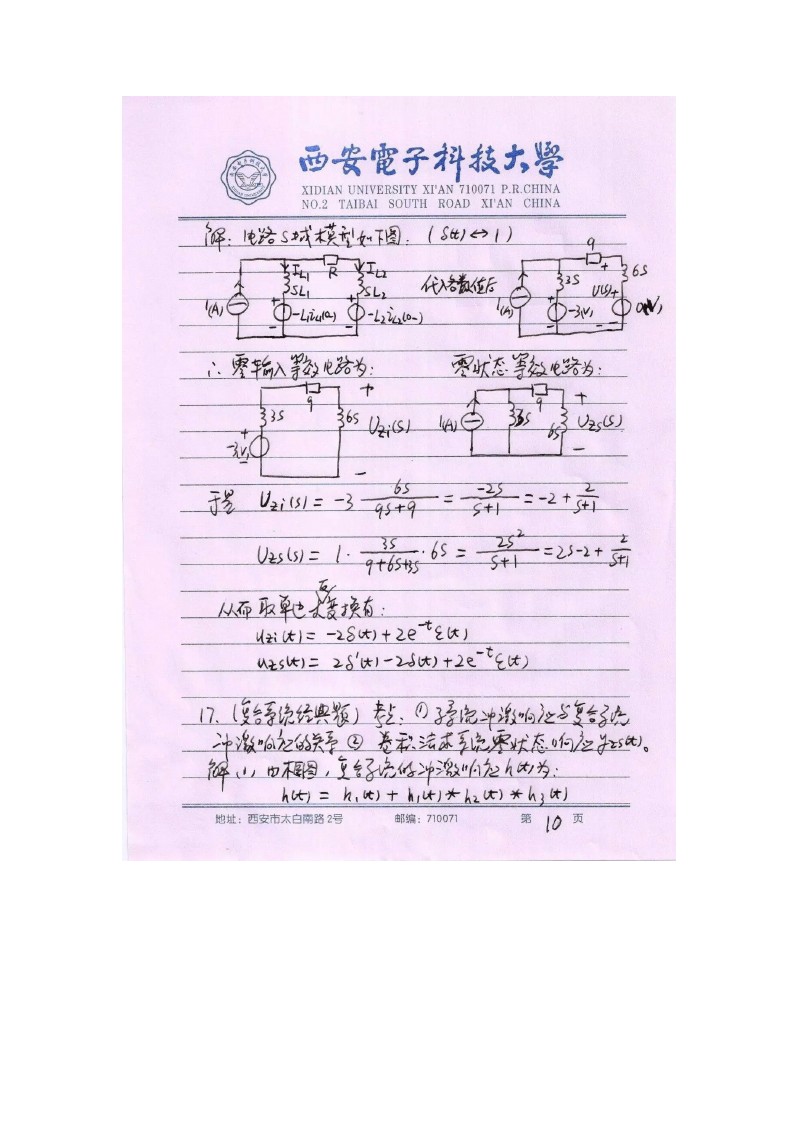 西安電子科技大學
XIDIAN UNIVERSITY XI'AN 710071 P.R.CHINA
NO.2 TAIBAI SOUTH ROAD XI'AN CHINA
解: 电路S域模型如下图: (δ(t)↔1)
1(A) I_L1 SL1 R I_L2 SL2 -L1i_L1(0-) -L2i_L2(0-) 代入各数值后 1(A) 3S 9 6S U(s) -3(V) 0(V)
∴ 零输入等效电路为: 零状态等效电路为:
3S 9 6S -3(V) Uzi(s) 1(A) 3S 9 6S Uzs(s)
于是 Uzi(s) = -3 6S/(9S+9) = -2S/(S+1) = -2 + 2/(S+1)
Uzs(s) = 1 · 3S/(9+6S+3S) · 6S = 2S²/(S+1) = 2S-2+ 2/(S+1)
从而取单边反变换有:
uzi(t) = -2δ(t) + 2e^{-t}ε(t)
uzs(t) = 2δ'(t) - 2δ(t) + 2e^{-t}ε(t)
17. (复合系统经典题) 考点: ① 子系统冲激响应与复合系统
冲激响应的关系 ② 卷积法求系统零状态响应yzs(t)。
解 (1) 由框图, 复合系统的冲激响应h(t)为:
h(t) = h1(t) + h1(t)*h2(t)*h3(t)
地址: 西安市太白南路2号 邮编: 710071 第 10 页